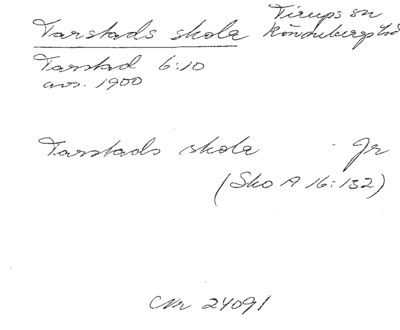 Tarstads skola
Tirups sn
Rönnebergs hd
Tarstad 6:10
avs. 1900
Tarstads skola Jr
(Sko A 16:132)
Nr 24091